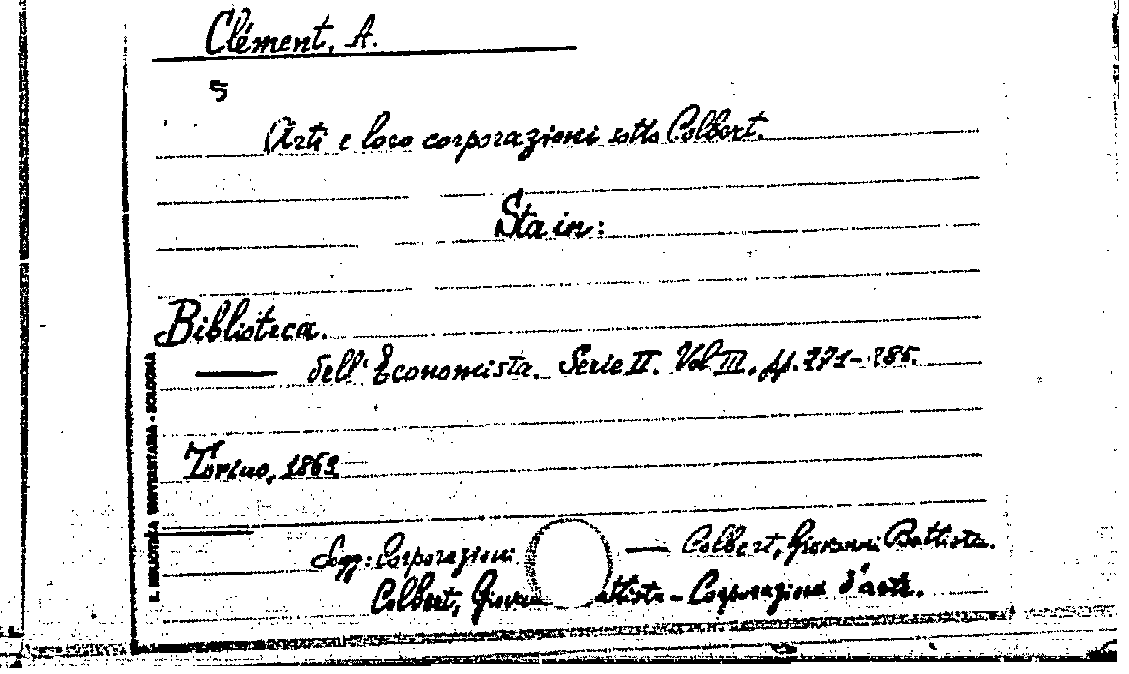 Clément, A.
5
Arti e loro corporazioni sotto Colbert.
Sta in:
Biblioteca.
dell'Economista. Serie II. Vol III, pp. 771-785.
Torino, 1862
Sogg: Corporazioni — Colbert, Giovanni Battista.
Colbert, Giova ttista - Corporazioni d'arte.
R. BIBLIOTECA UNIVERSITARIA - BOLOGNA